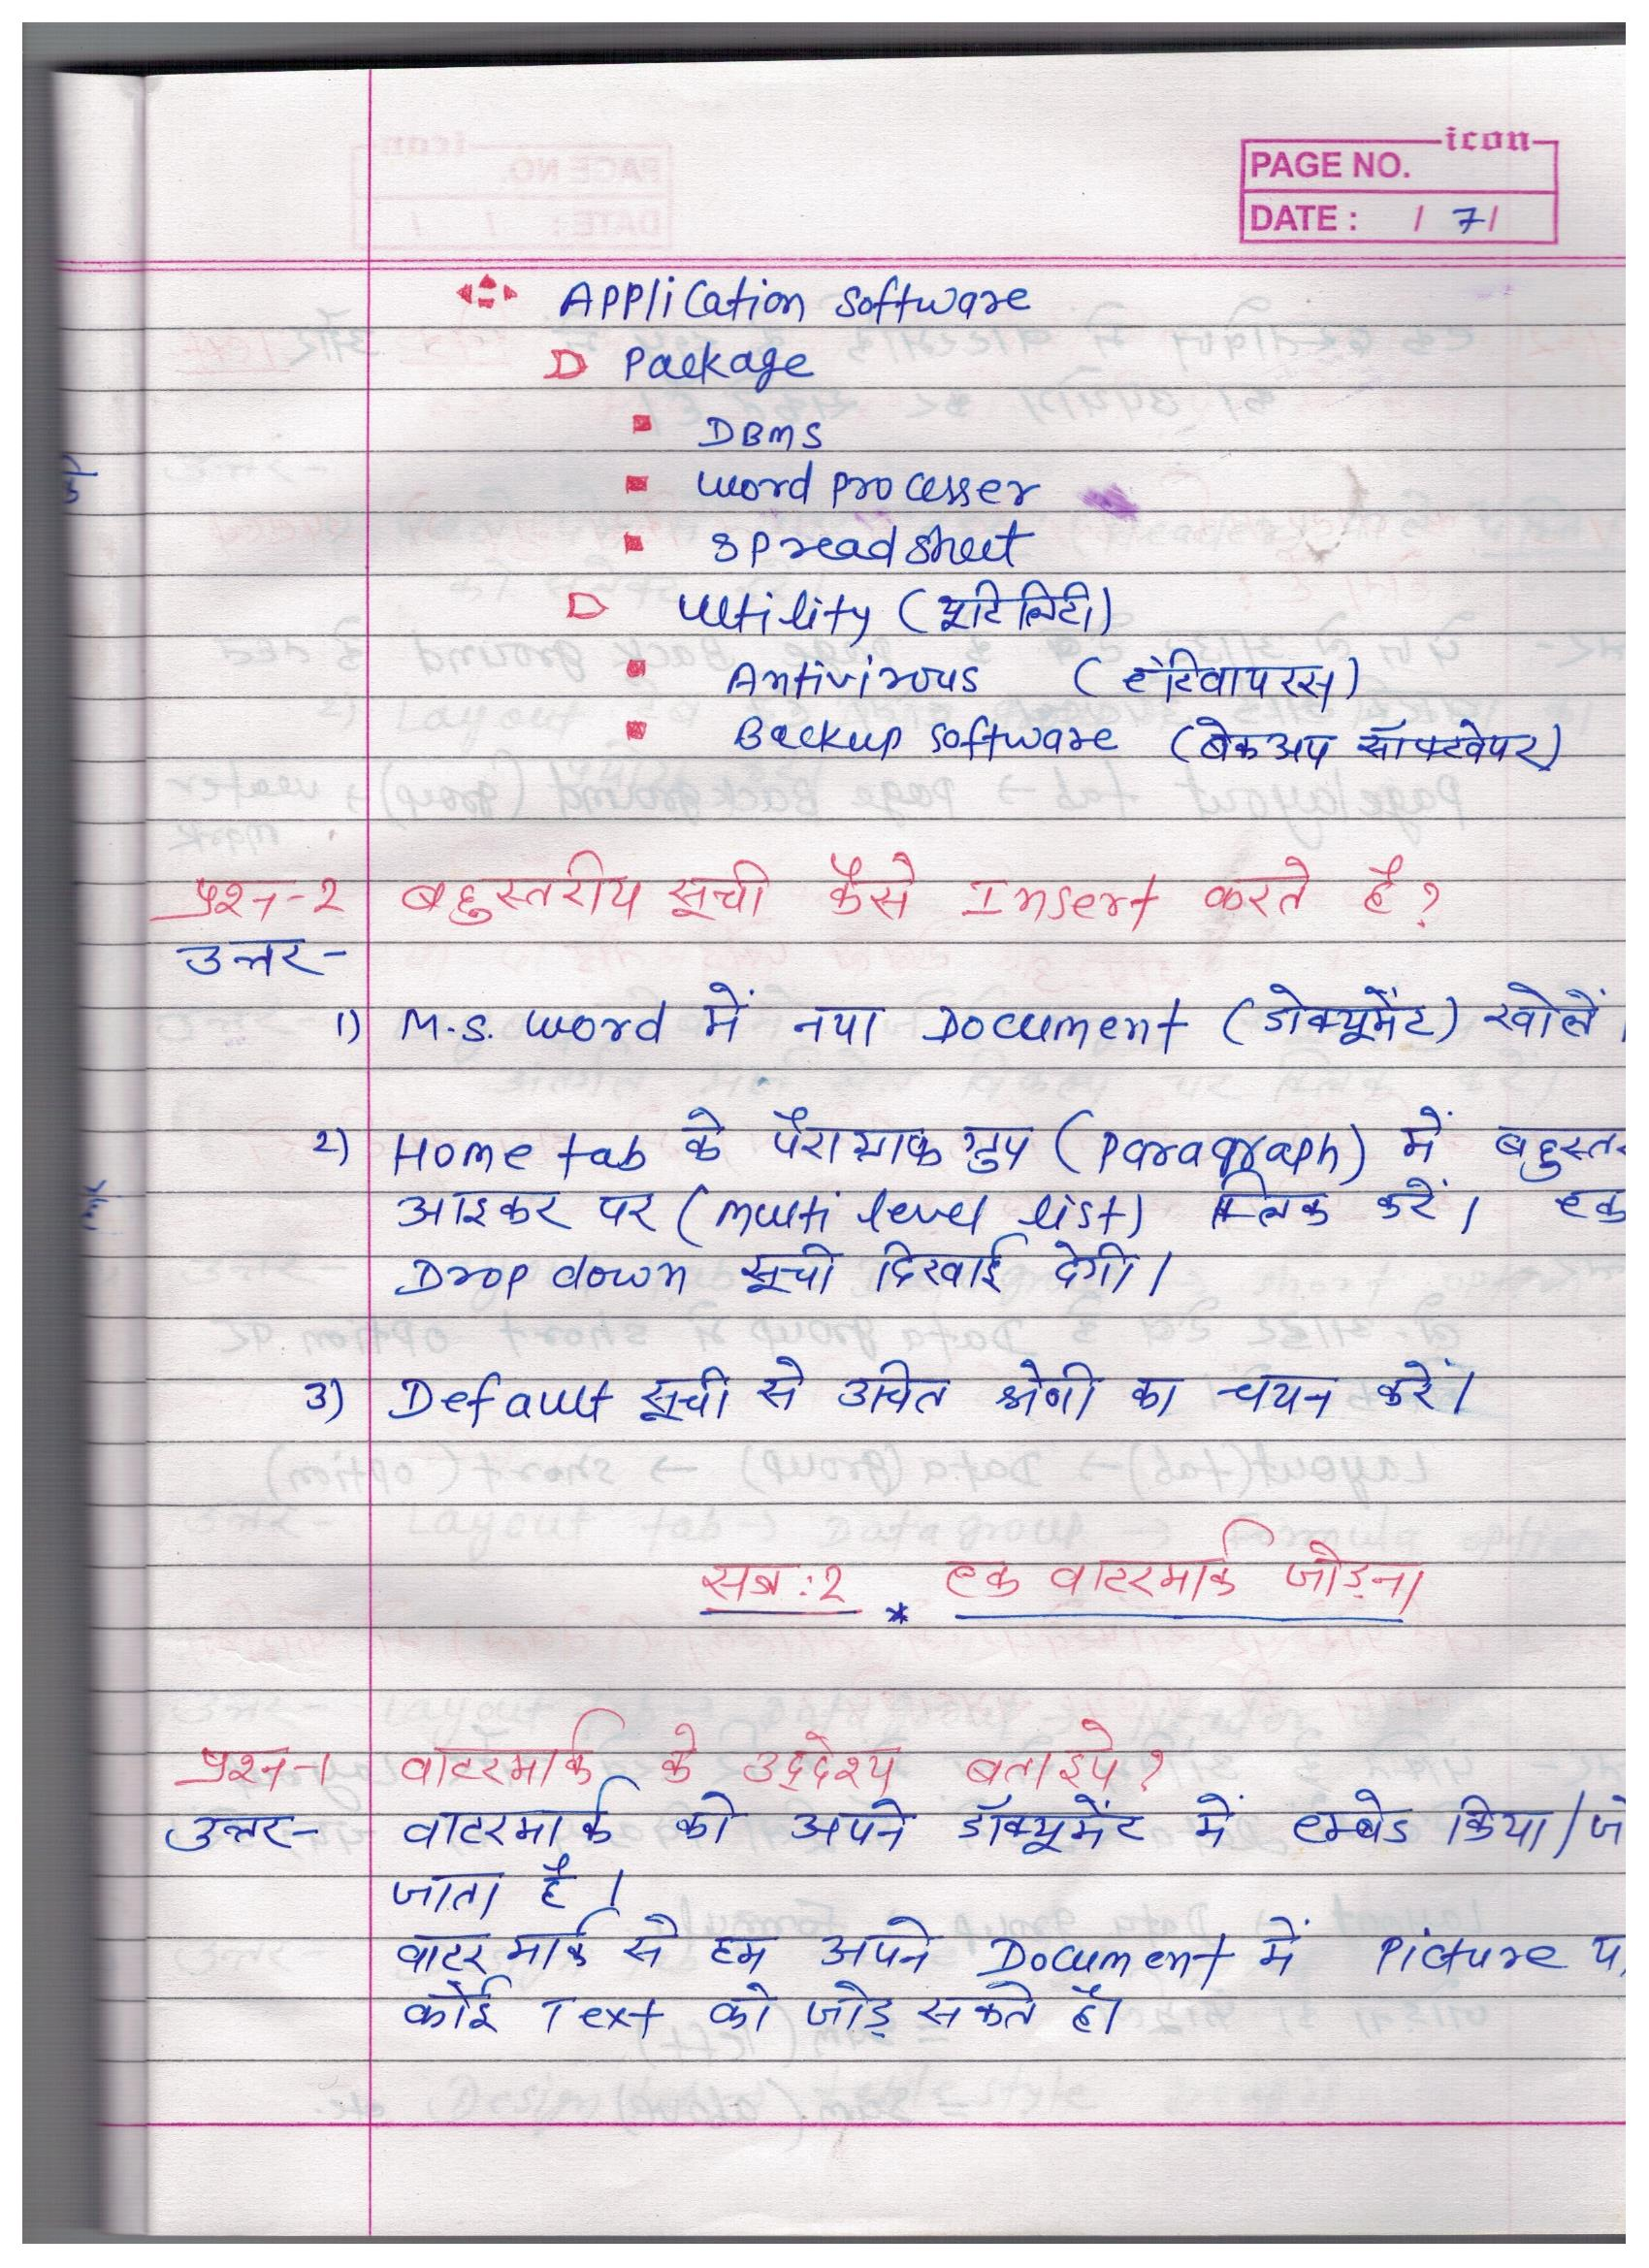 icon
PAGE NO.
DATE : / 7 /
Application software
Package
DBMS
word processer
spreadsheet
Utility (यूटिलिटी)
Antivirous (एंटिवायरस)
Backup software (बेकअप सॉफ्टवेयर)
प्रश्न-2 बहुस्तरीय सूची कैसे Insert करते है?
उत्तर-
1) M.S. word में नया Document (डोक्यूमेंट) खोलें।
2) Home tab के पैराग्राफ ग्रुप (Paragraph) में बहुस्तर
आइकर पर (multi level list) क्लिक करें। एक
Drop down सूची दिखाई देगी।
3) Default सूची से उचित श्रेणी का चयन करें।
सत्र:2 * एक वाटरमार्क जोड़ना
प्रश्न-1 वाटरमार्क के उद्देश्य बताइये?
उत्तर- वाटरमार्क को अपने डॉक्यूमेंट में एम्बेड किया/जो
जाता है।
वाटरमार्क से हम अपने Document में Picture य
कोई Text को जोड़ सकते है।